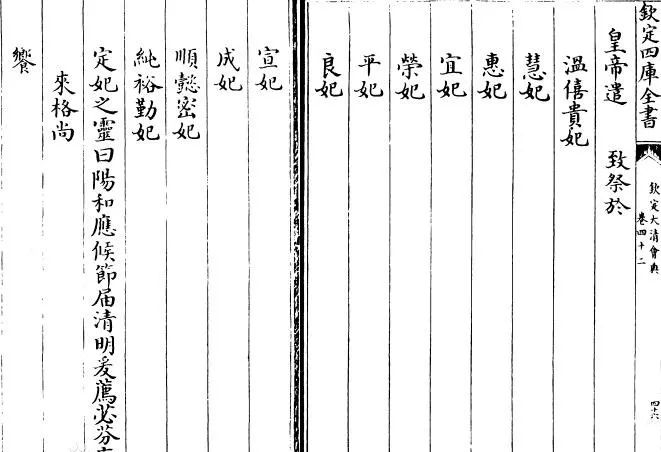 欽定四庫全書
欽定大清會典
卷四十二
四十六
皇帝遣 致祭於
溫僖貴妃
慧妃
惠妃
宜妃
榮妃
平妃
良妃
宣妃
成妃
順懿密妃
純裕勤妃
定妃之靈曰陽和應候節届清明爰薦苾芬
來格尚
饗